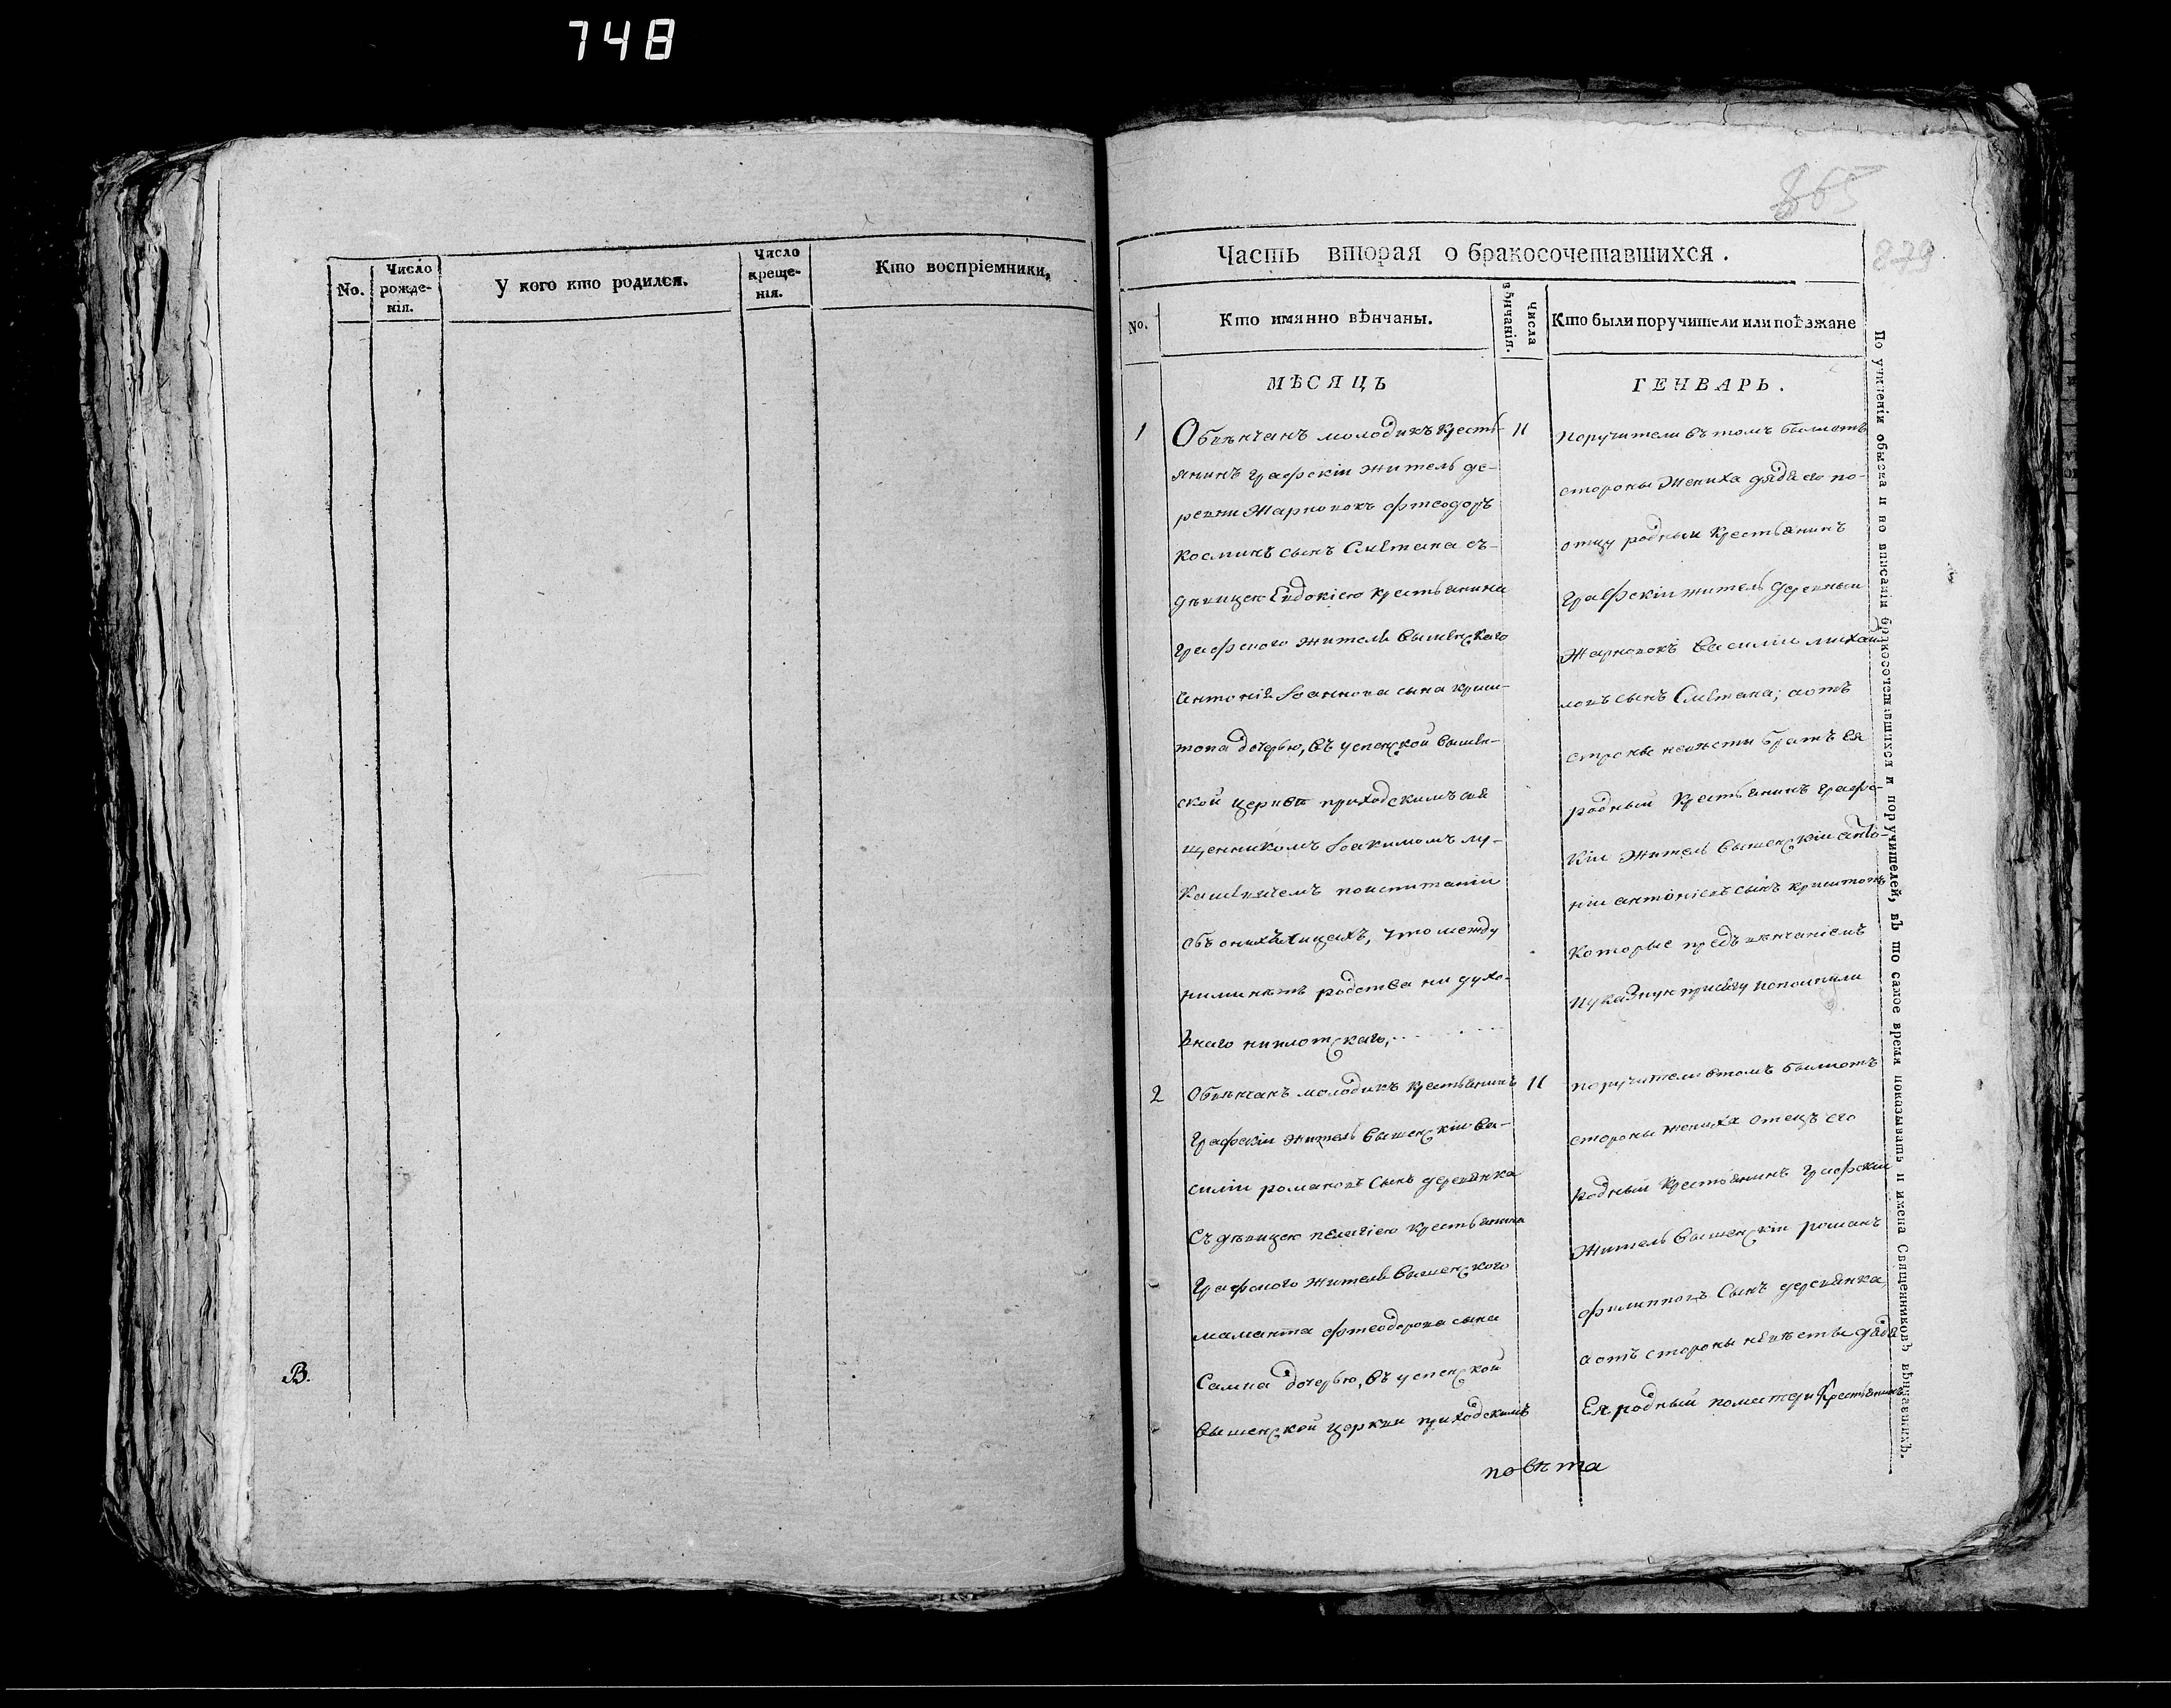 748
No.
Число рожде-нія.
У кого кто родился.
Число креще-нія.
Кто воспріемники,
В.
365
879
Часть вторая о бракосочетавшихся.
No.
Кто имянно вѣнчаны.
Числа вѣнчанія.
Кто были поручители или поѣзжане
МѢСЯЦЪ
ГЕНВАРЬ.
1
Обвѣнчанъ молодикъ кресть-
янинъ графскіи житель де-
ревни Жарновокъ Фтеодоръ
Косминъ сынъ Сметана съ-
дѣвицею Евдокіею крестьянина
графского жителя вышенскаго
Антонія Іоаннова сына криш-
топа дочерью, въ успенской вышен-
ской церкви приходскимъ свя
щенникомъ Іоакимомъ лу-
кашевичемъ поиспитаніи
объ онихъ лицахъ, что между
ними нѣтъ родства ни духо-
внаго ниплотскаго,
11
поручители въ томъ были отъ
стороны жениха дядя его по-
отцу родный крестьянинъ
графскіи житель деревныи
Жарновокъ василіи михаи-
ловъ сынъ Сметана; а отъ
стороны невѣсти братъ ея
родный крестьянинъ графс-
кіи житель вышенскіи анто-
ніи антоніевъ сынъ криштопъ
которые предъ вѣнчаніемъ
иуказную присягу исполнили
2
Обвѣнчанъ молодикъ крестьянинъ
графскіи житель вышенскіи ва-
силіи романовъ сынъ деревянка
съ дѣвицею пелагіею крестьянина
графского жителя вышенского
маманта фтеодорова сына
Сампа дочерью, въ успенской
вышенской церкви приходскимъ
11
поручители втомъ были отъ
стороны жениха отецъ его
родный крестьянинъ графскіи
житель вышенскіи романъ
филипповъ сынъ деревянка,
а отъ стороны невѣсты дядя
Ея родный поматери крестьянинъ
повѣта
По учиненіи обыска и по вписаніи бракосочетавшихся и поручителей, въ то самое время показывать и имена Священниковъ вѣнчавшихъ.